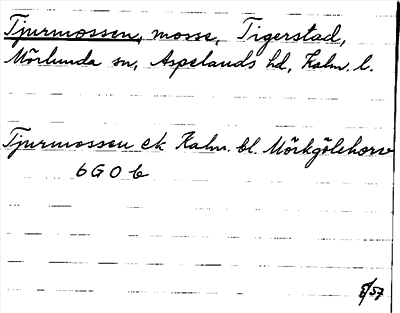 Tjurmossen, mosse, Tigerstad,
Mörlunda sn, Aspelands hd, Kalm. l.
Tjurmossen ek Kalm. bl. Mörkgölehorva
6 G 0 b
/57